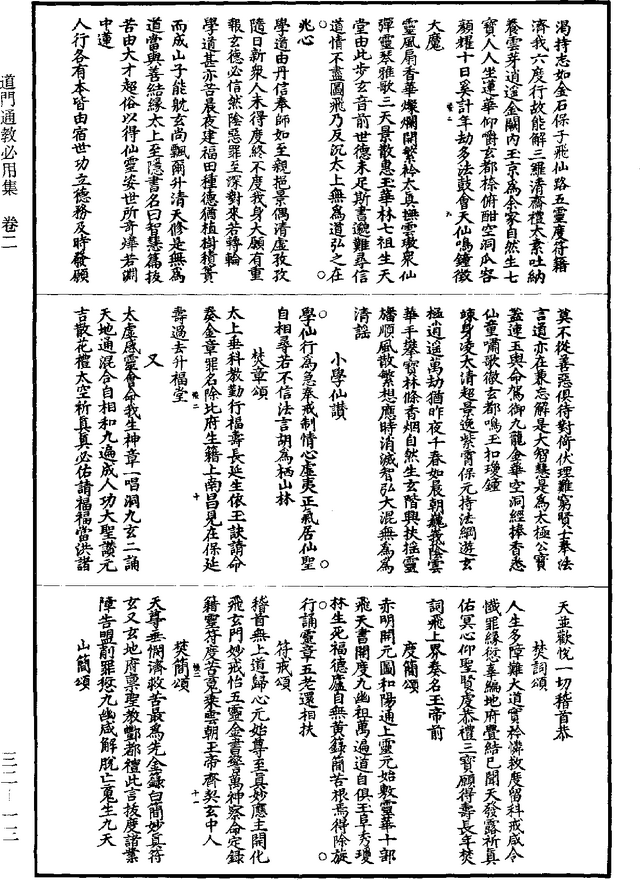 道門通教必用集 卷二
渴持志如金石保子飛仙路五靈度符籍
濟我六度行故能解三羅清齋禮太素吐納
養雲芽逍遙金闕內玉京為余家自然生七
寶人人坐蓮華仰嚼玄都㮈俯酣空洞瓜容
顏耀十日奚計年劫多法鼓會天仙鳴鍾徵
大魔
靈風扇香華燦爛開繁衿太真撫雲璈眾仙
彈靈琴雅歌三天景散惠玉華林七祖生天
堂由此步玄音前世德未足斯書邈難尋信
道情不盡圖飛乃反沉太上無為道弘之在
兆心
學道由丹信奉師如至親挹景偶清虛孜孜
隨日新眾人未得度終不度我身大願有重
報玄德必信然陰惡罪至深對來若轉輪
學道甚亦苦晨夜建福田種德猶植樹積簣
而成山子能躭玄尚飄爾升清天修是無為
道當與善結緣太上至隱書名曰智慧篇拔
苦由大才超俗以得仙靈姿世所奇煒若淵
中蓮
人行各有本皆由宿世功立德務及時發願
莫不從善惡俱待對倚伏理難窮賢士奉法
言道亦在兼忘解是大智慧是為太極公寶
蓋連玉輿命駕御九龍金華空洞經捧香悉
仙童嘯歌徹玄都鳴玉扣瓊鐘
竦身凌太清超景逸紫霄保元持法綱遊玄
極逍遙萬劫猶昨夜千春如晨朝巍峩陰雲
華手攀寶林條香烟自然生玄階興扶搖靈
旛順風散繁想應時消滅智弘大混無為為
清謠
小學仙讚
學仙行為急奉戒制情心虛夷正氣居仙聖
自相尋若不信法言胡為栖山林
焚章頌
太上垂科教勤行福壽長延生依玉訣請命
奏金章罪名除北府生籍上南昌見在保延
壽過去升福堂
又
太虛感靈會命我生神章一唱洞九玄二誦
天地通混合自相和九遍成人功大聖讚元
吉散花禮太空祈真真必佑請福福當洪諸
天並歡悅一切稽首恭
焚詞頌
人生多障難大道實衿憐教度留科戒咸令
懺罪緣愆辜編地府釁結已聞天發露祈真
佑冥心仰聖賢虔恭禮三寶願得壽長年焚
詞飛上界奏名玉帝前
度簡頌
赤明開元圖和陽通上靈元始敷靈華十部
飛天書開度九幽祖萬遍道自俱玉阜秀瓊
林生死福德廬自無黃籙簡苦根焉得除旋
行誦靈章五老還相扶
符戒頌
稽首無上道歸心元始尊至真妙應主開化
飛玄門妙戒怡五靈金書警萬神察命定錄
籍靈符度苦䰟乘雲朝玉帝齊契玄中人
焚簡頌
天尊垂憫濟救苦最為先金籙白簡妙真符
玄又玄地府稟聖教酆都禮此言拔度諸業
障告盟削罪愆九幽咸解脫亡䰟生九天
山簡頌
三二—一三